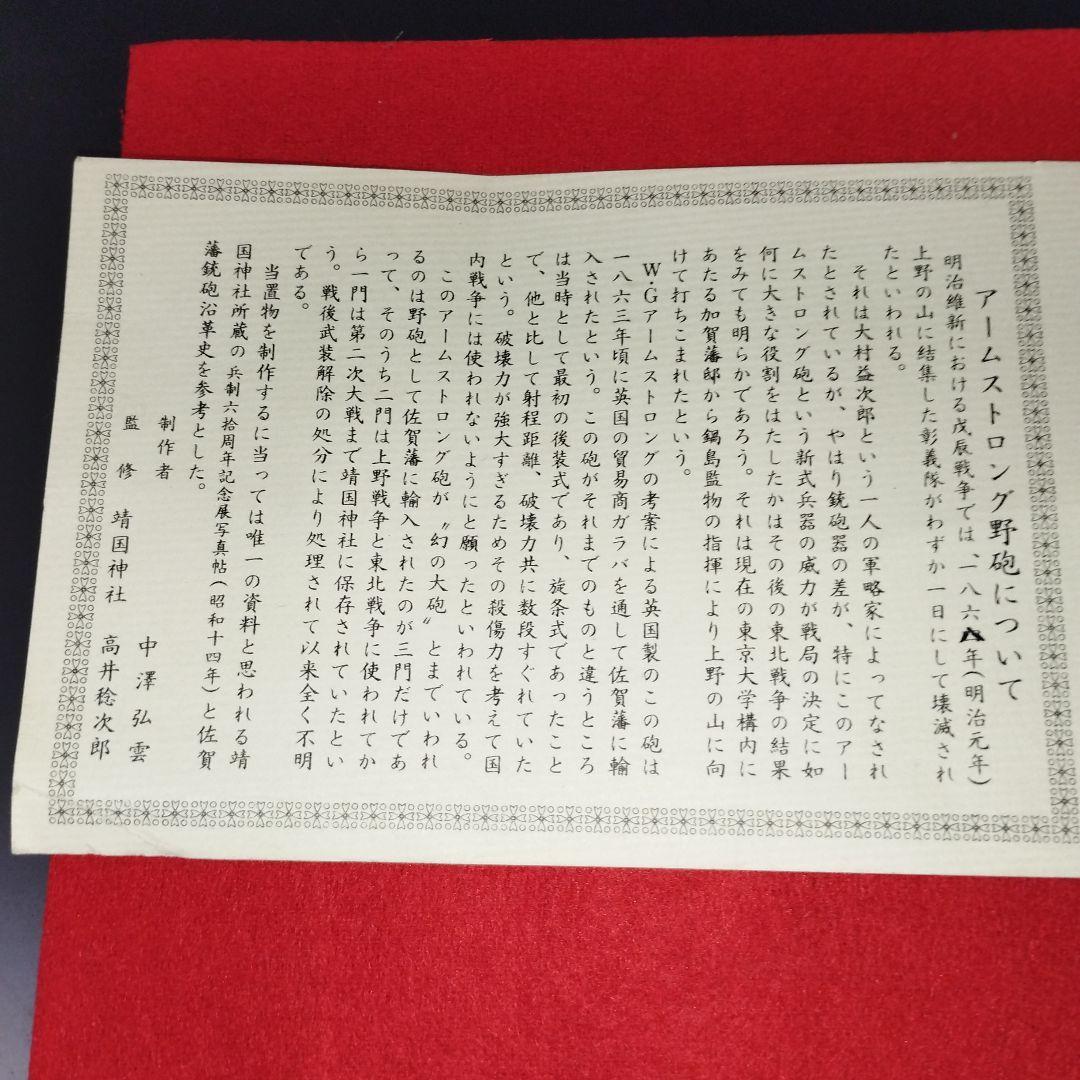 アームストロング野砲について
明治維新における戊辰戦争では、一八六八年(明治元年)
上野の山に結集した彰義隊がわずか一日にして壊滅され
たといわれる。
それは大村益次郎という一人の軍略家によってなされ
たとされているが、やはり銃砲器の差が、特にこのアー
ムストロング砲という新式兵器の威力が戦局の決定に如
何に大きな役割をはたしたかはその後の東北戦争の結果
をみても明らかであろう。それは現在の東京大学構内に
あたる加賀藩邸から鍋島監物の指揮により上野の山に向
けて打ちこまれたという。
W・Gアームストロングの考案による英国製のこの砲は
一八六三年頃に英国の貿易商ガラバを通して佐賀藩に輸
入されたという。この砲がそれまでのものと違うところ
は当時として最初の後装式であり、旋条式であったこと
で、他と比して射程距離、破壊力共に数段すぐれていた
という。破壊力が強大すぎるためその殺傷力を考えて国
内戦争には使われないようにと願ったといわれている。
このアームストロング砲が〝幻の大砲〟とまでいわれ
るのは野砲として佐賀藩に輸入されたのが三門だけであ
って、そのうち二門は上野戦争と東北戦争に使われてか
ら一門は第二次大戦まで靖国神社に保存されていたとい
う。戦後武装解除の処分により処理されて以来全く不明
である。
当置物を制作するに当っては唯一の資料と思われる靖
国神社所蔵の兵制六拾周年記念展写真帖(昭和十四年)と佐賀
藩銃砲沿革史を参考とした。
制作者 中澤弘雲
監修 靖国神社 高井稔次郎